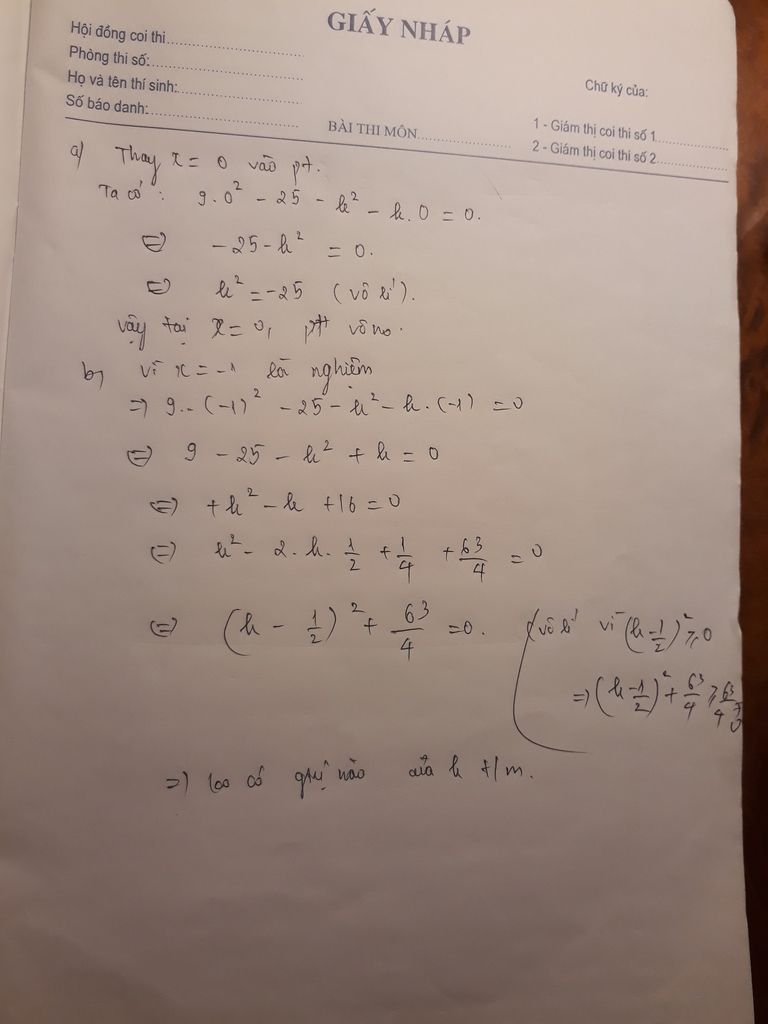 GIẤY NHÁP
Hội đồng coi thi
Phòng thi số:
Họ và tên thí sinh:
Số báo danh:
Chữ ký của:
BÀI THI MÔN
1 - Giám thị coi thi số 1
2 - Giám thị coi thi số 2
a) Thay x = 0 vào pt.
Ta có : 9.0² - 25 - k² - k.0 = 0.
⇔ -25 - k² = 0.
⇔ k² = -25 (vô lí).
Vậy tại x = 0, pt vô no.
b) Vì x = -1 là nghiệm
⇒ 9.(-1)² - 25 - k² - k.(-1) = 0
⇔ 9 - 25 - k² + k = 0
⇔ +k² - k + 16 = 0
⇔ k² - 2.k.1/2 + 1/4 + 63/4 = 0
⇔ (k - 1/2)² + 63/4 = 0. (vô lí vì (k - 1/2)² ≥ 0
⇒ (k - 1/2)² + 63/4 ≥ 63/4
⇒ có nào của k t/m.